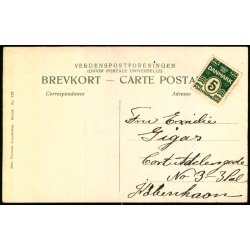 VERDENSPOSTFORENINGEN
(UNION POSTALE UNIVERSELLE)
BREVKORT – CARTE POSTALE
Correspondance
Adresse
DANMARK
5
Fru Emilie
Gigas
Cort Adelersgade
No 3 - 3 Sal
København